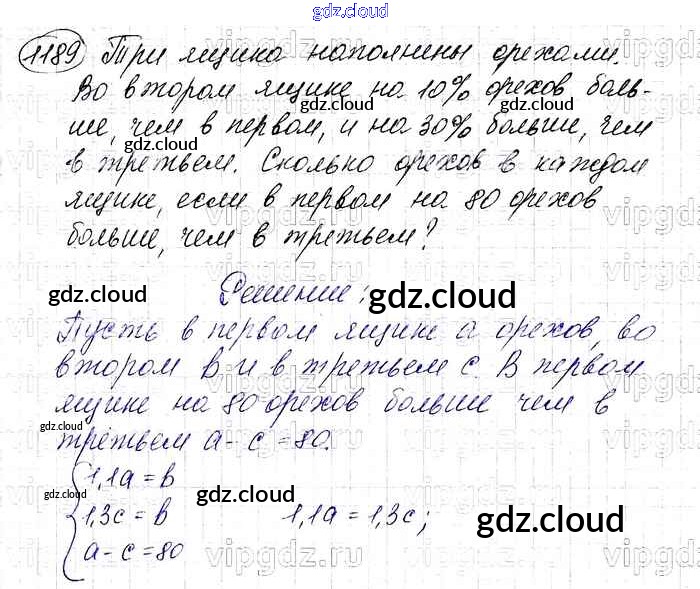 gdz.cloud
1189 Три ящика наполнены орехами.
Во втором ящике на 10% орехов боль-
ше, чем в первом, и на 30% больше, чем
в третьем. Сколько орехов в каждом
ящике, если в первом на 80 орехов
больше, чем в третьем?
Решение:
Пусть в первом ящике a орехов, во
втором b и в третьем c. В первом
ящике на 80 орехов больше чем в
третьем a - c = 80.
1,1a = b
1,3c = b 1,1a = 1,3c;
a - c = 80
gdz.cloud
gdz.cloud
gdz.cloud
gdz.cloud
gdz.cloud
gdz.cloud
gdz.cloud
gdz.cloud
gdz.cloud
gdz.cloud